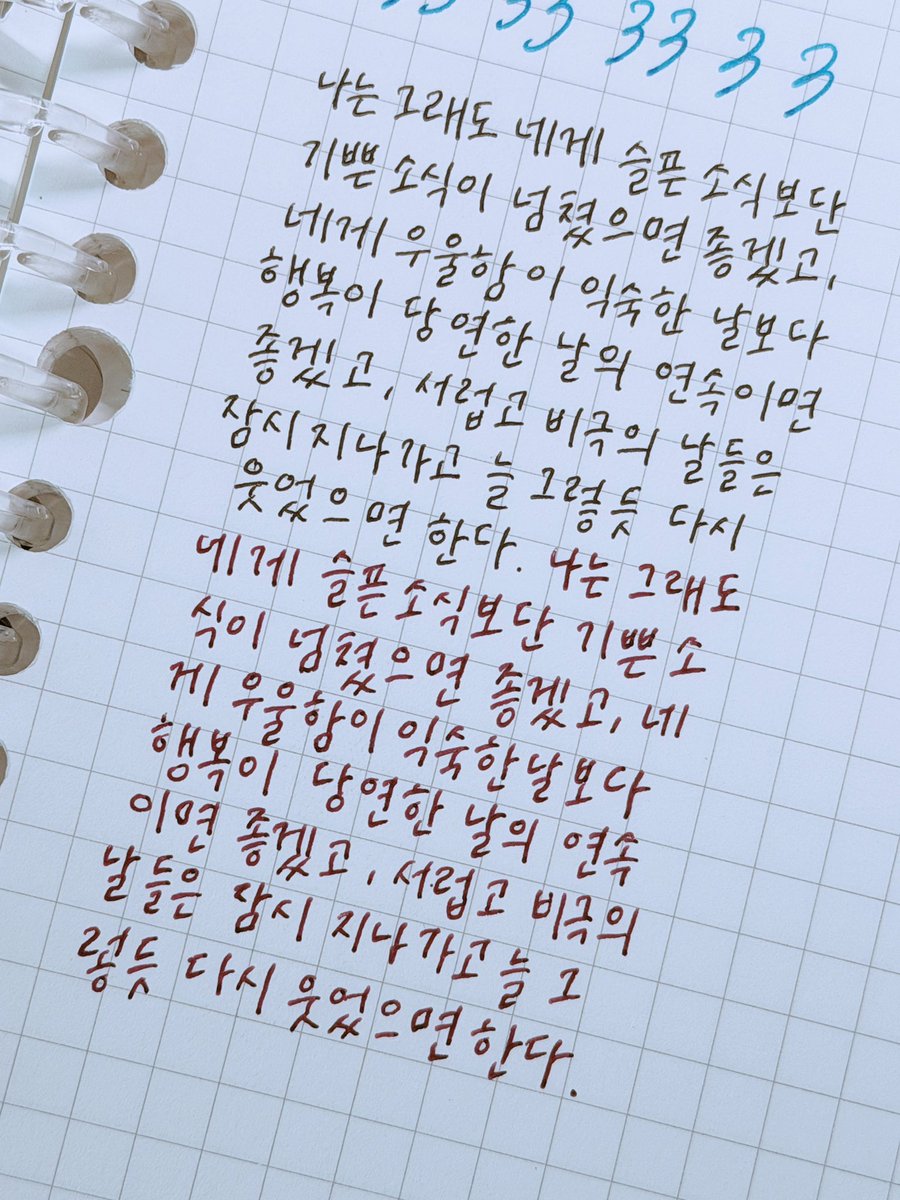 33 33 33 3 3
나는 그래도 네게 슬픈 소식보단
기쁜 소식이 넘쳤으면 좋겠고,
네게 우울함이 익숙한 날보다
행복이 당연한 날의 연속이면
좋겠고, 서럽고 비극의 날들은
잠시 지나가고 늘 그렇듯 다시
웃었으면 한다. 나는 그래도
네게 슬픈 소식보단 기쁜 소
식이 넘쳤으면 좋겠고, 네
게 우울함이 익숙한 날보다
행복이 당연한 날의 연속
이면 좋겠고, 서럽고 비극의
날들은 잠시 지나가고 늘 그
렇듯 다시 웃었으면 한다.